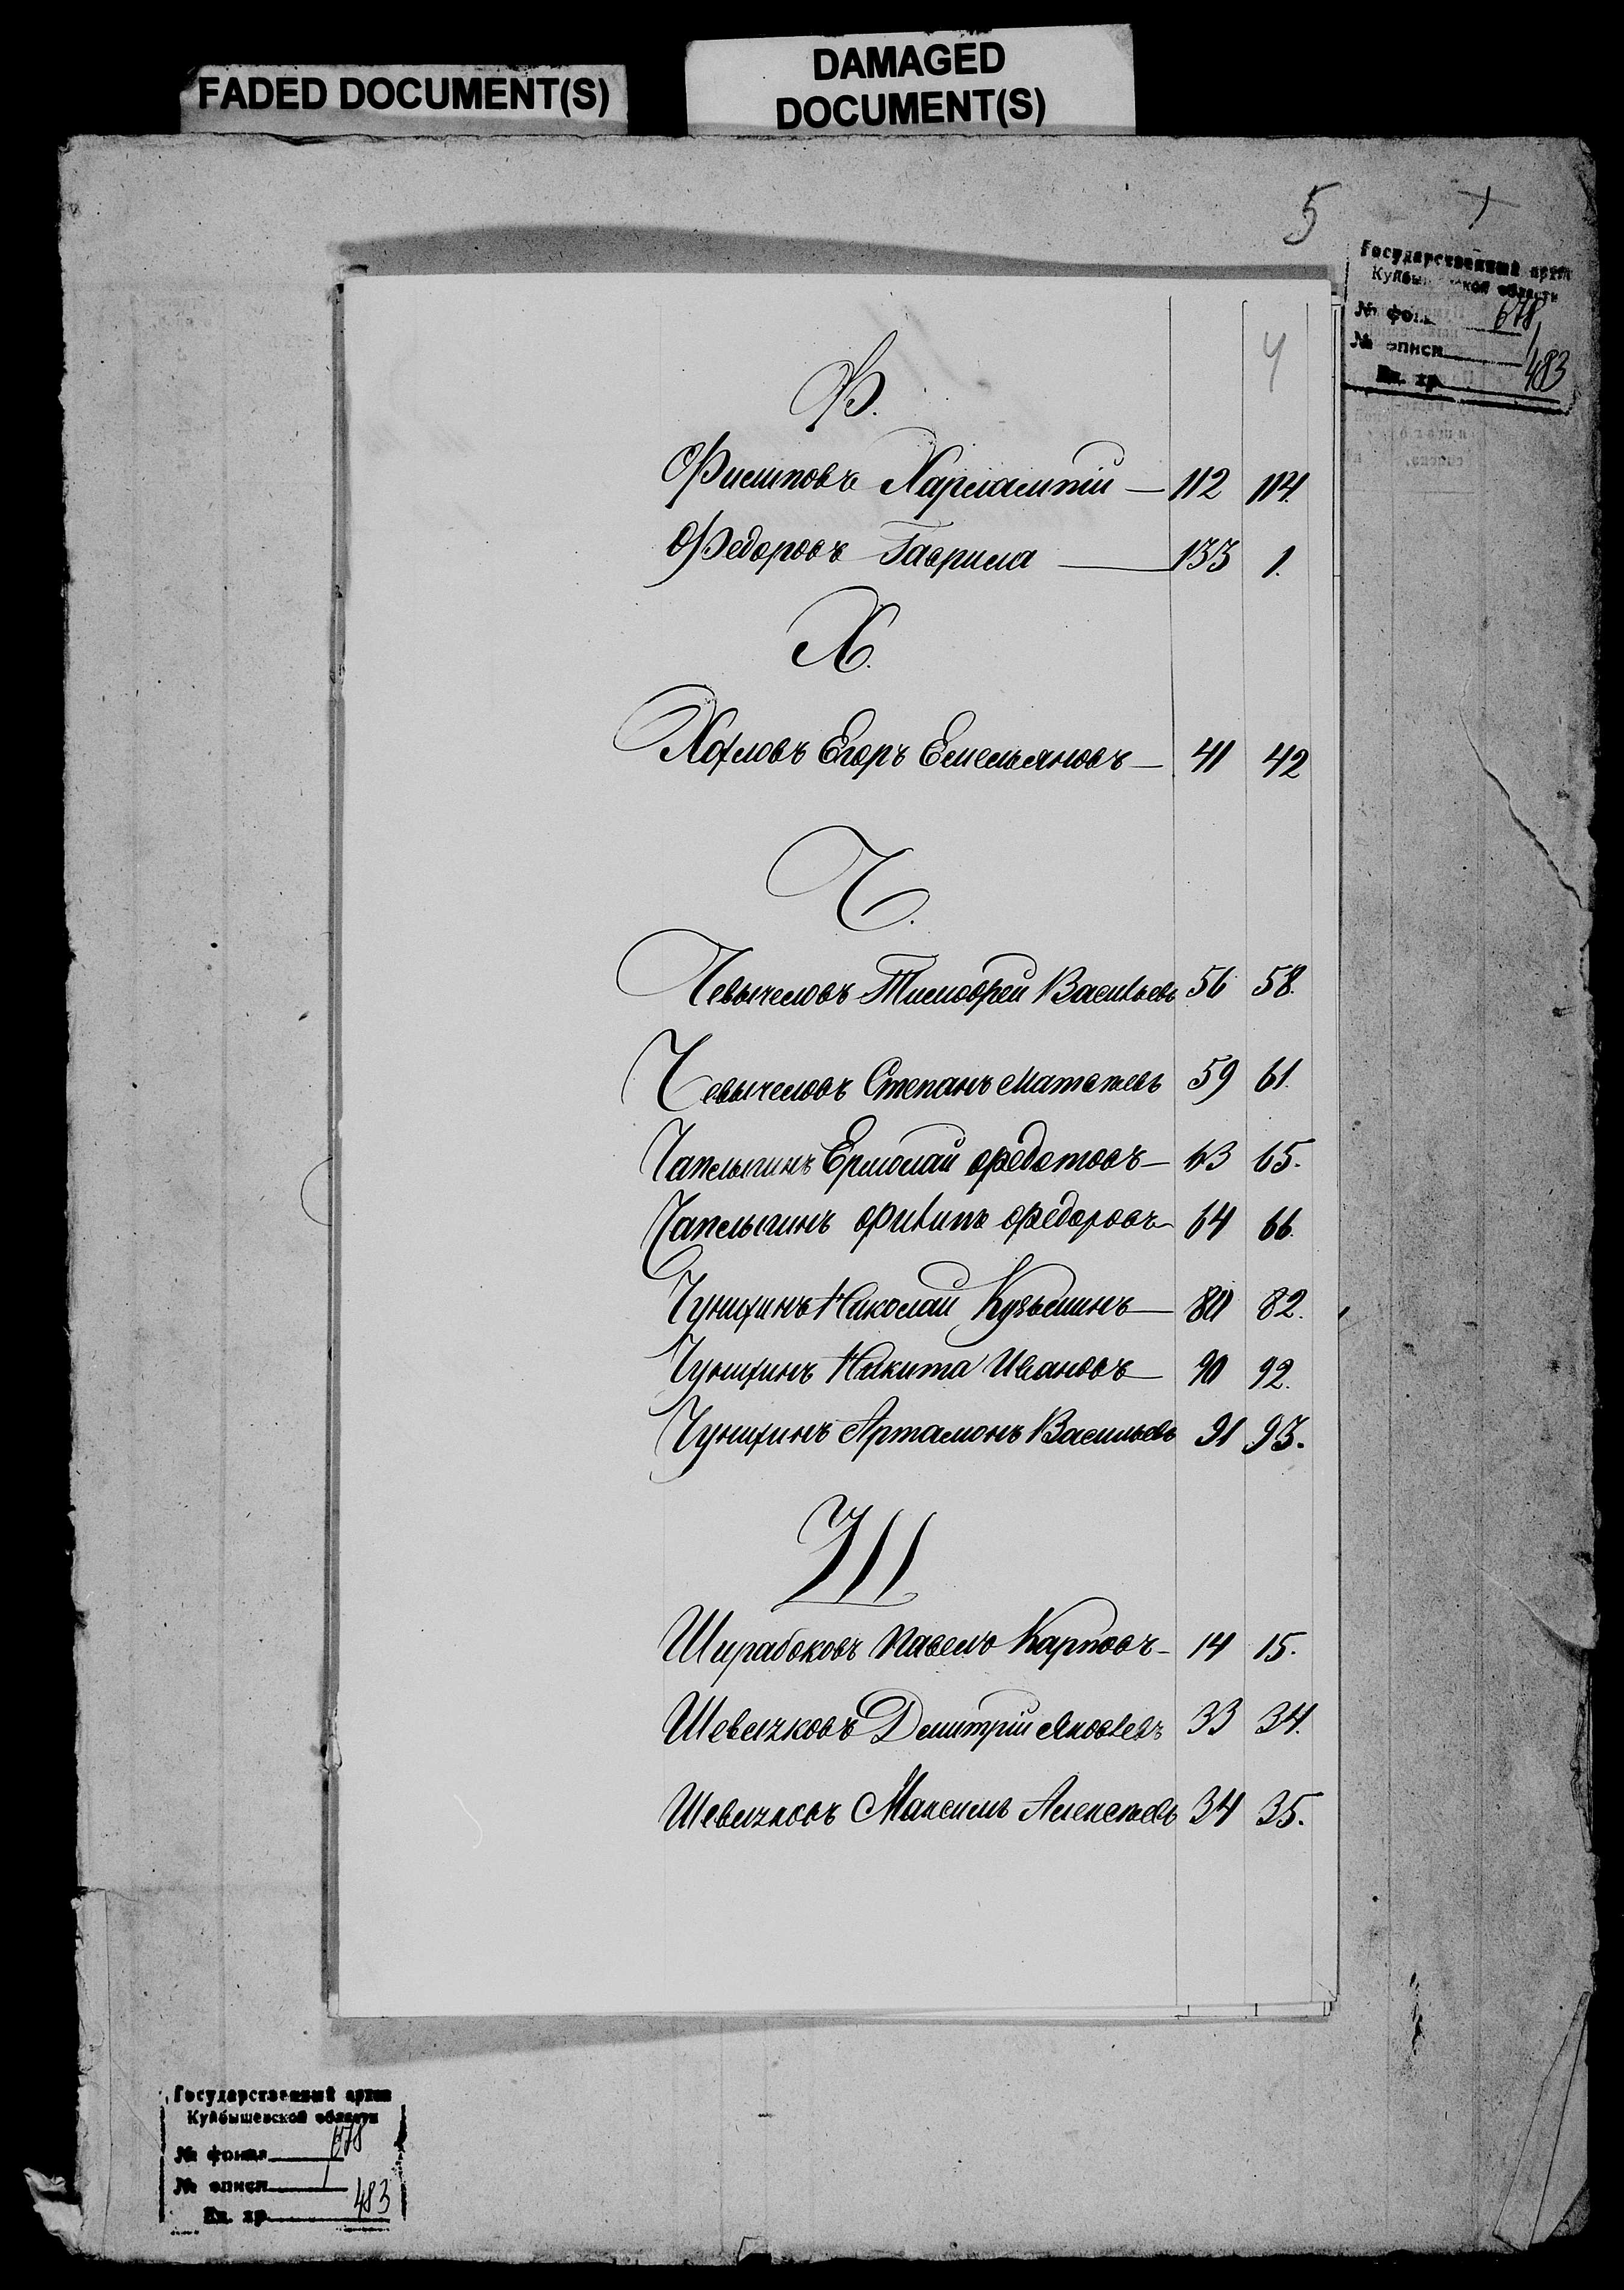 FADED DOCUMENT(S)
DAMAGED
DOCUMENT(S)
5
Государственный архив
Куйбышевской области
№ фонда 678
№ описи 1
Ед. хр. 483
4
Ф.
Филиповъ Харлампій — 112 114.
Федоровъ Гаврила — 133 1.
Х.
Хохловъ Егоръ Емельяновъ — 41 42
Ч.
Чевычеловъ Тимофей Васильевъ 56 58.
Чевычеловъ Степанъ Матвѣевъ 59 61.
Чаплыгинъ Ермолай Федотовъ — 63 65.
Чаплыгинъ Филипъ Федоровъ 64 66.
Чунихинъ Николай Кузьминъ — 80 82.
Чунихинъ Никита Ивановъ — 90 92.
Чунихинъ Артамонъ Васильевъ 91 93.
Ш
Ширабоковъ Павелъ Карповъ — 14 15.
Шевлчковъ Дмитрій Яковлевъ 33 34.
Шевлчковъ Максимъ Алексѣевъ 34 35.
Государственный архив
Куйбышевской области
№ фонда 678
№ описи 1
Ед. хр. 483